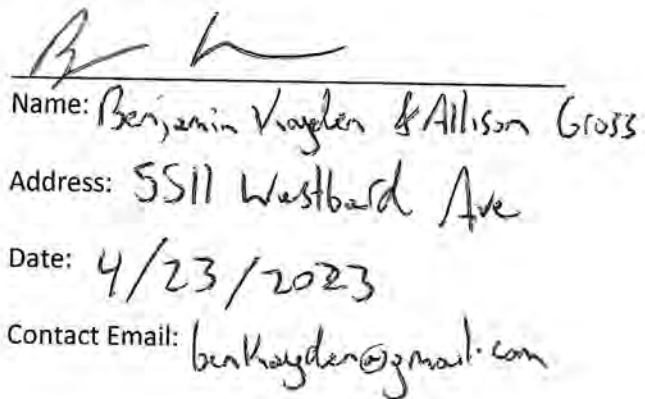 Name: Benjamin Krayden & Allison Gross
Address: 5511 Westbard Ave
Date: 4/23/2023
Contact Email: benkrayden@gmail.com